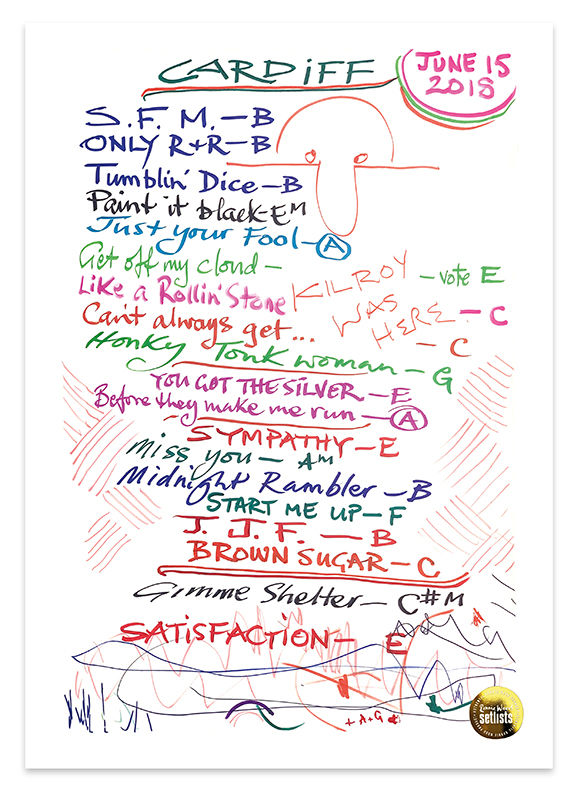 CARDIFF
JUNE 15
2018
S. F. M. – B
ONLY R+R – B
Tumblin' Dice – B
Paint it black – Em
Just your Fool – A
Get off my cloud – – vote E
Like a Rollin' Stone – C
KILROY
WAS
HERE
Can't always get... – C
Honky Tonk woman – G
YOU GOT THE SILVER – E
Before they make me run – A
SYMPATHY – E
Miss you – Am
Midnight Rambler – B
START ME UP – F
J. J. F. – B
BROWN SUGAR – C
Gimme Shelter – C#M
SATISFACTION – E
+ A+G
Ronnie Wood
setlists